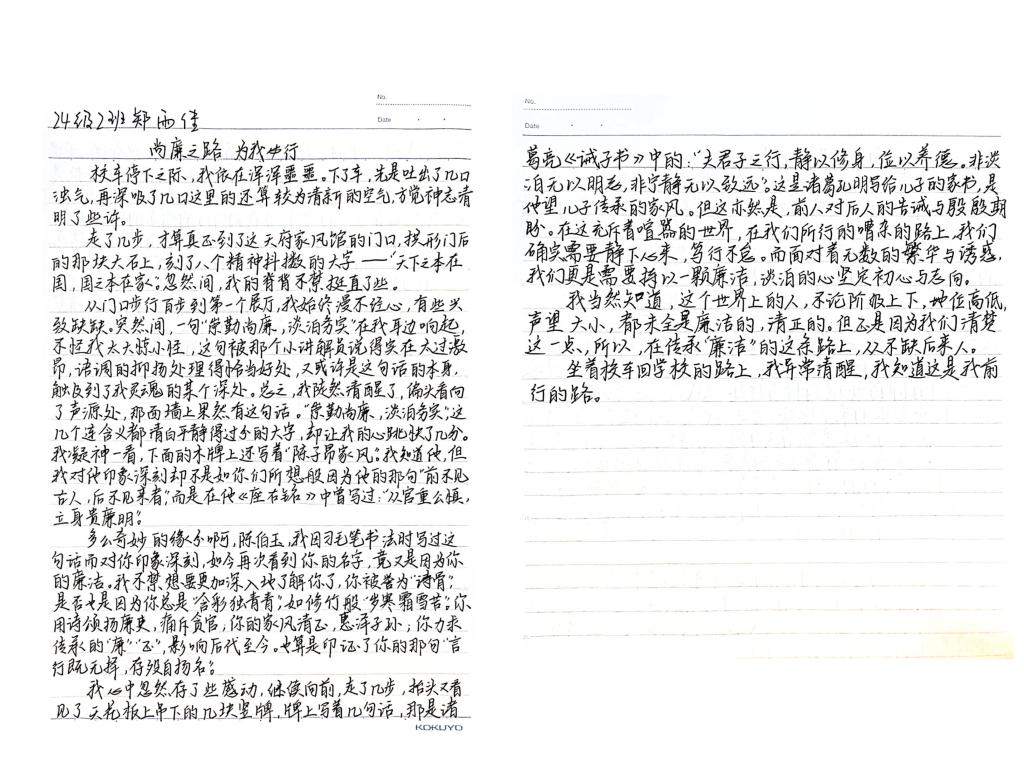 No.
Date
24级2班郑雨佳
尚廉之路 为我必行
校车停下之际,我依在浑浑噩噩。下了车,先是吐出了几口
浊气,再深吸了几口这里的还算较为清新的空气,方觉神志清
明了些许。
走了几步,才算真正到了这天府家风馆的门口,拱形门后
的那块大石上,刻了八个精神抖擞的大字——“天下之本在
国,国之本在家”。忽然间,我的脊背不禁挺直了些。
从门口步行百步到第一个展厅,我始终漫不经心,有些兴
致缺缺。突然间,一句“崇勤尚廉,淡泊务实”在我耳边响起,
不怪我大大惊小怪,这句被那个小讲解员说得实在太过激
昂,语调的抑扬处理得恰当好处,又或许是这句话的本身,
触及到了我灵魂的某个深处。总之,我陡然清醒了,偏头看向
了声源处,那面墙上果然有这句话。“崇勤尚廉,淡泊务实”,这
几个连含义都清白平静得过分的大字,却让我的心跳快了几分。
我凝神一看,下面的木牌上还写着“陈子昂家风”。我知道他,但
我对他印象深刻却不是如你们所想般因为他的那句“前不见
古人,后不见来者”,而是在他《座右铭》中曾写过:“从官重公慎,
立身贵廉明”。
多么奇妙的缘分啊,陈伯玉,我因习毛笔书法时写过这
句话而对你印象深刻,如今再次看到你的名字,竟又是因为你
的廉洁。我不禁想要更加深入地了解你了,你被誉为“诗骨”,
是否也是因为你总是“含彩独青青”,如修竹般“岁寒霜雪苦”。你
用诗颂扬廉吏,痛斥贪官,你的家风清正,惠泽子孙;你力求
传承的“廉”“正”,影响后代至今。也算是印证了你的那句“言
行既无择,存殁自扬名”。
我心中忽然存了些感动,继续向前,走了几步,抬头又看
见了天花板上吊下的几块竖牌,牌上写着几句话,那是诸
KOKUYO
No.
Date
葛亮《诫子书》中的:“夫君子之行,静以修身,俭以养德。非淡
泊无以明志,非宁静无以致远”。这是诸葛孔明写给儿子的家书,是
他望儿子传承的家风。但这亦然是,前人对后人的告诫与殷殷期
盼。在这充斥着喧嚣的世界,在我们所行的嘈杂的路上,我们
确实需要静下心来,笃行不怠。而面对着无数的繁华与诱惑,
我们更是需要持以一颗廉洁,淡泊的心坚定初心与志向。
我当然知道,这个世界上的人,不论阶级上下,地位高低,
声望大小,都未全是廉洁的,清正的。但正是因为我们清楚
这一点,所以,在传承“廉洁”的这条路上,从不缺后来人。
坐着校车回学校的路上,我异常清醒,我知道这是我前
行的路。